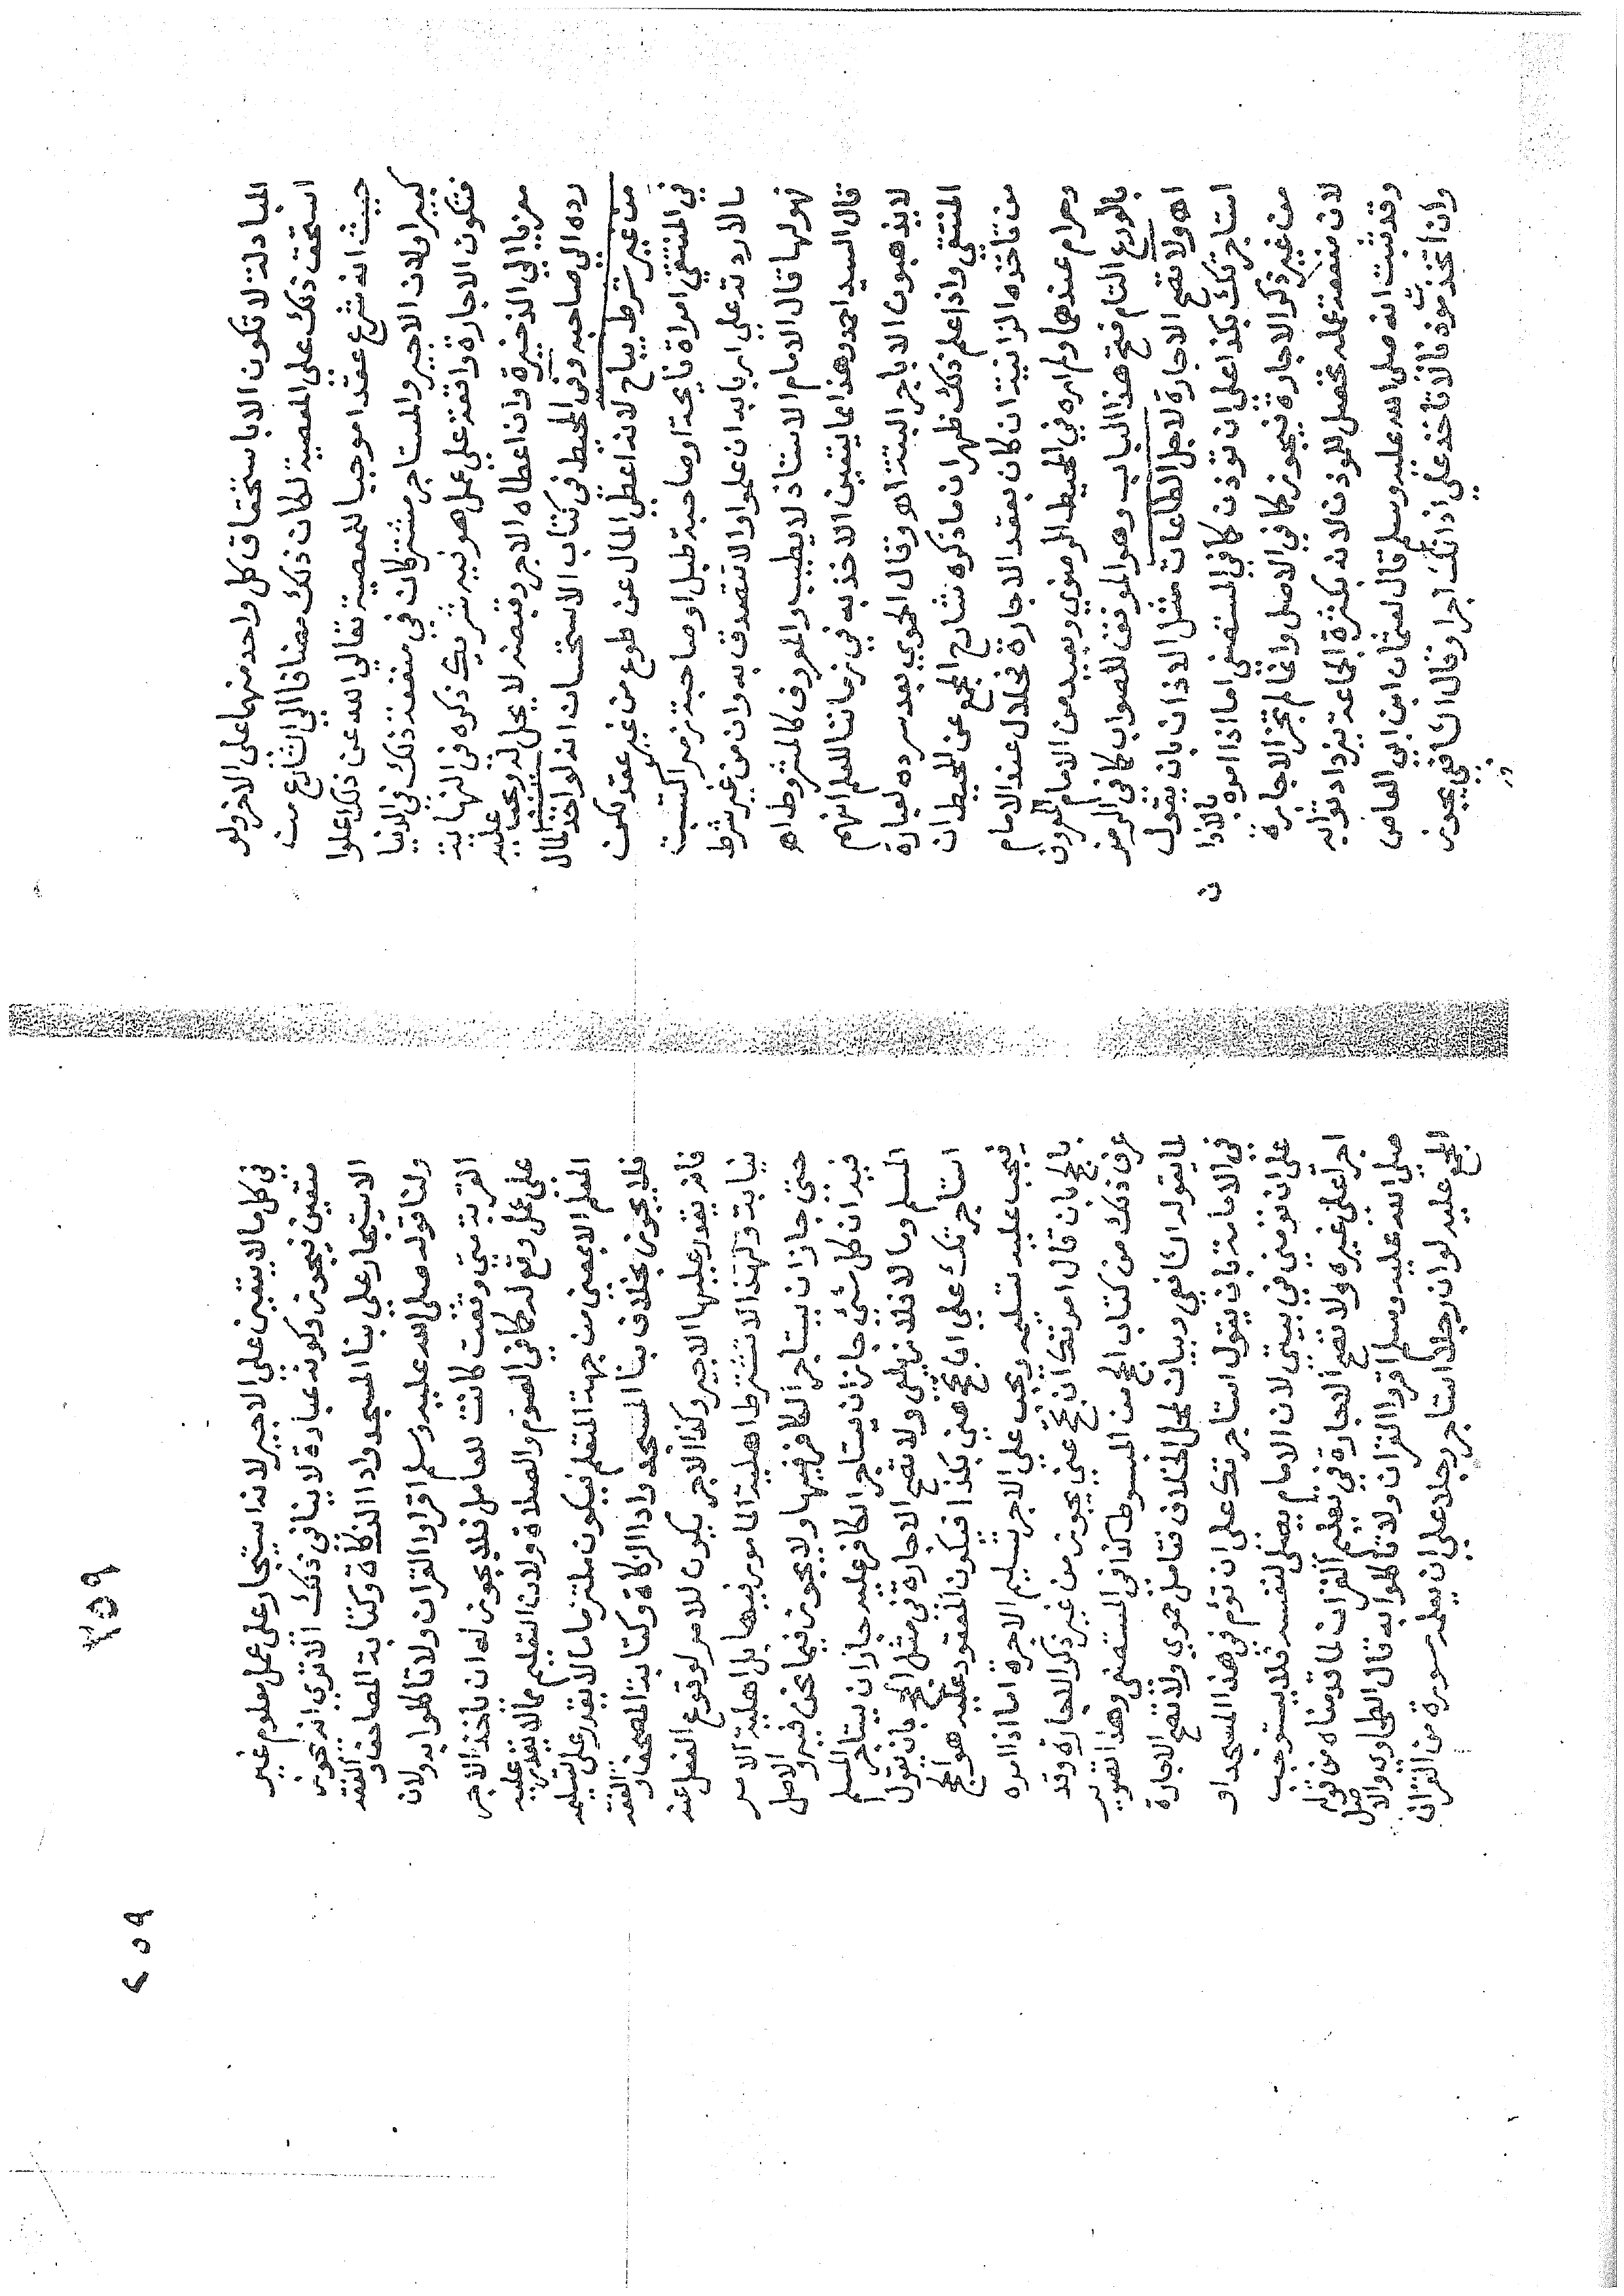 المبادلة لا تكون الا باستحقاق كل واحد منهما على الاخر ولو
استحق ذلك على المعصية لكان ذلك مضافا الى الشارع من
حيث انه شرع عقدا موجبا للمعصية تعالى الله عن ذلك علوا
كبيرا ولان الاجير والمستاجر مشتركان في منفعة ذلك في الدنيا
فتكون الاجارة واقعة على عمل هو فيه شريك ذكره في النهاية
معزيا الى الذخيرة وان اعطاه الاجر وقبضه لا يحل له ويجب عليه
رده الى صاحبه وفي المحيط في كتاب الاستحسان انه لو اخذ المال
من غير شرط يباح لانه اعطى المال عن طوع من غير عقد لكن
في المنتقى امراة نايحة او صاحبة طبل او صاحبة زمر اكتسبت
مالا ردته على اربابه ان علموا والا تتصدق به وان من غير شرط
فهو لها قال الامام الاستاذ لا يطيب والمعروف كالمشروط اهـ
قال السيد احمد وهذا مما يتعين الاخذ به في زماننا للعلم انهم
لا يذهبون الا باجر البتة اهـ وقال الحموي بعد سرده لعبارة
المنتقى واذا علم ذلك ظهر ان ما ذكره شارح المجمع عن المحيط ان
من تاخذه الزانية ان كان بعقد الاجارة فحلال عند الامام
وحرام عندهما ولم اره في المحيط الرضوي وبعيد من الامام المعروف
بالورع التام فتح هذا الباب وهو الموفق للصواب كما في الرمز
اهـ ولا تصح الاجارة لاجل الطاعات مثل الاذان بان يقول
استاجرتك بكذا على ان توذن كما في المستصفى اما اذا امره بالاذان
من غير ذكر الاجارة فيجوز كما في الاصل وانما لم تجز الاجارة
لان منفعة عمله تحصل للموذن لانه بكثرة الجماعة تزداد ثوابه
وقد ثبت انه صلى الله عليه وسلم قال لعثمان ابن ابي العاص
وان اتخذت موذنا فلا تاخذ على اذانك اجرا وقال الشافعي يجوز
في كل ما لا يتعين على الاجير لانه استيجار على عمل معلوم غير
متعين فيجوز وكونه عبادة لا ينافي ذلك الا ترى انه يجوز
الاستيجار على بنا المسجد وادا الزكاة وكتابة المصاحف والفقه
ولنا قوله صلى الله عليه وسلم اقراوا القران ولا تاكلوا به ولان
القربة متى وقعت كانت للعامل فلا يجوز له ان ياخذ الاجر
على عمل وقع له كما في الصوم والصلاة ولان التعليم مما لا يقدر عليه
المعلم الا بمعنى من جهة المتعلم فيكون ملتزما ما لا يقدر على تسليمه
فلا يجوز بخلاف بنا المسجد وادا الزكاة وكتابة المصحف والفقه
فانه يقدر عليها الاجير وكذا الاجر يكون للامر لوقوع الفعل عنه
نيابة ولهذا لا تشترط اهلية المامور فيها بل اهلية الامر
حتى جاز ان يستاجر الكافر فيها ولا يجوز فيما نحن فيه والاصل
فيه ان كل شي جاز ان يستاجر الكافر عليه جاز ان يستاجر المسلم
المسلم وما لا فلا زيلعي ولا تصح الاجارة في مثل الحج بان يقول
استاجرتك على ان تحج عني بكذا فيكون المعقود عليه هو الحج
فيجب عليه تسليمه ويجب على الاجر تسليم الاجرة اما اذا امره
بالحج بان قال امرتك ان تحج عني يجوز من غير ذكر الاجارة وقد
عرف ذلك من كتاب الحج من المبسوط كذا في المستصفى وهذا تصوير
لما يقوله الشافعي وبيان لمحل الخلاف فتامل حموي ولا تصح الاجارة
في الامامة بان يقول استاجرتك على ان توم في هذا المسجد او
على ان تومني في بيتي لان الامام يصلي لنفسه فلا يستوجب
اجرا على غيره ولا تصح الاجارة في تعليم القران لما قدمناه من قوله
صلى الله عليه وسلم اقروا القران ولا تاكلوا به قال الطحاوي والاصل
المجمع عليه لو ان رجلا استاجر رجلا على ان يعلمه سورة من القران
٢٥٩
٢٥٩